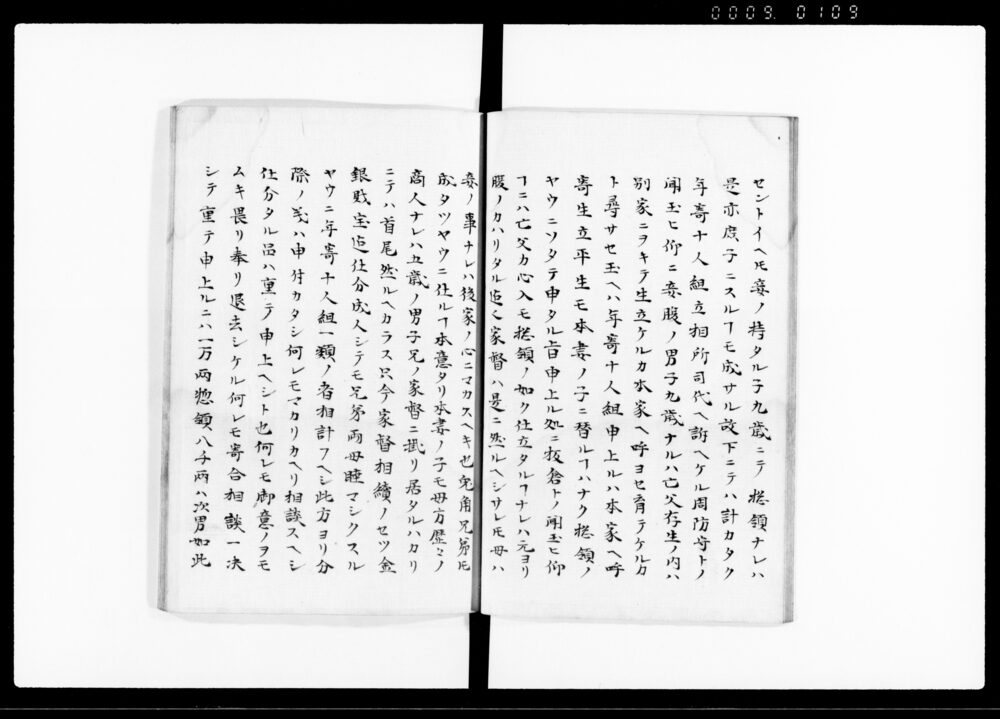 0009 0109
セントイヘ𪜈妾ノ持タル子九歳ニテ捴領ナレハ
是亦庶子ニスルヿモ成サル故下ニテハ計カタク
年寄十人組立相所司代ヘ訴ヘケル周防守トノ
聞玉ヒ仰ニ妾腹ノ男子九歳ナルハ亡父存生ノ内ハ
別家ニヲキテ生立ケルカ本家ヘ呼ヨセ育テケルカ
ト尋サセ玉ヘハ年寄十人組申上ルハ本家ヘ呼
寄生立平生モ本妻ノ子ニ替ルヿハナク捴領ノ
ヤウニソタテ申タル旨申上ル処ニ板倉トノ聞玉ヒ仰
ヿニハ亡父カ心入モ捴領ノ如ク仕立タルヿナレハ元ヨリ
腹ノカハリタル迄ニ家督ハ是ニ然ルヘシサレ𪜈母ハ
妾ノ事ナレハ後家ノ心ニマカスヘキ也兎角兄弟𪜈
成タツヤウニ仕ルヿ本意タリ本妻ノ子モ母方歴々ノ
商人ナレハ五歳ノ男子兄ノ家督ニ掛リ居タルハカリ
ニテハ首尾然ルヘカラス只今家督相續ノセツ金
銀財宝迄仕分成人シテモ兄弟両母睦マシクスル
ヤウニ年寄十人組一類ノ者相計フヘシ此方ヨリ分
際ノ義ハ申付カタシ何レモマカリカヘリ相談スヘシ
仕分タル品ハ重テ申上ヘシト也何レモ御意ノヲモ
ムキ畏リ奉リ退去シケル何レモ寄合相談一决
シテ重テ申上ルニハ一万両惣領八千両ハ次男如此